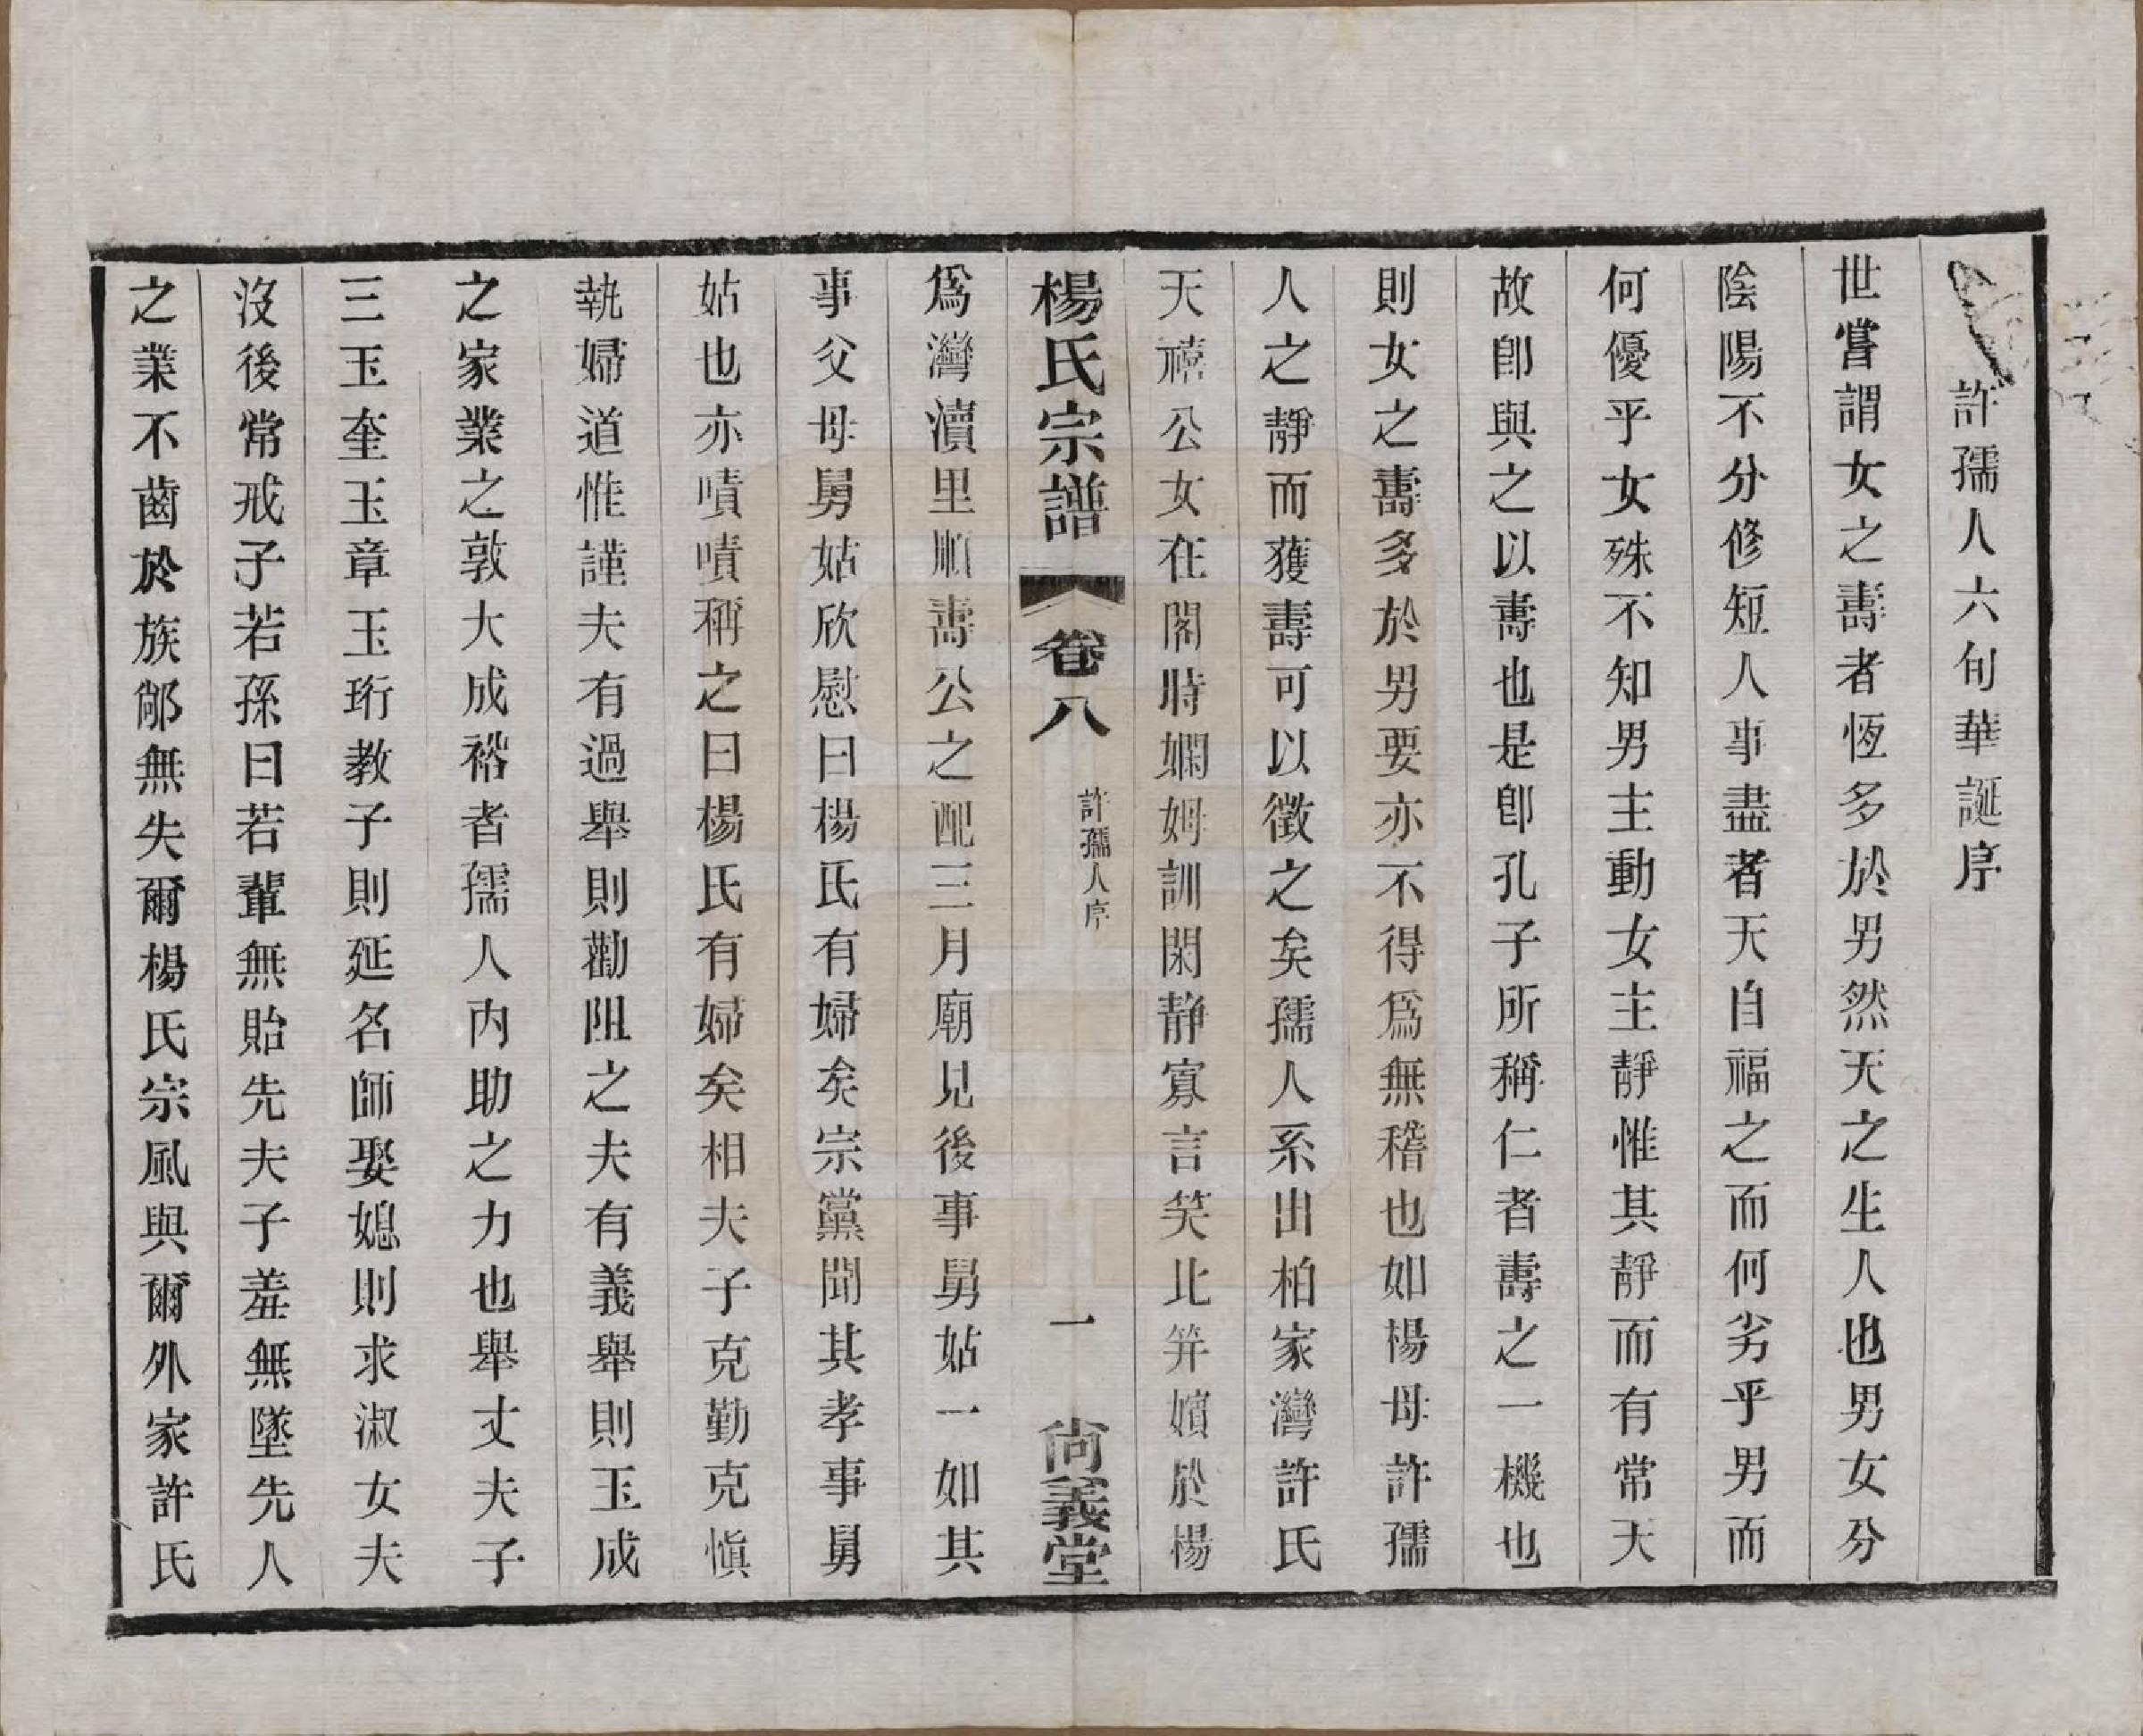 許孺人六旬華誕序
世嘗謂女之壽者恆多於男然天之生人也男女分
陰陽不分修短人事盡者天自福之而何劣乎男而
何優乎女殊不知男主動女主靜惟其靜而有常天
故卽與之以壽也是卽孔子所稱仁者壽之一機也
則女之壽多於男要亦不得爲無稽也如楊母許孺
人之靜而獲壽可以徵之矣孺人系出柏家灣許氏
天禧公女在閣時嫻姆訓閑靜寡言笑比笄嬪於楊
楊氏宗譜 卷八 許孺人序 一 尙義堂
爲灣瀆里順壽公之配三月廟見後事舅姑一如其
事父母舅姑欣慰曰楊氏有婦矣宗黨聞其孝事舅
姑也亦嘖嘖稱之曰楊氏有婦矣相夫子克勤克愼
執婦道惟謹夫有過舉則勸阻之夫有義舉則玉成
之家業之敦大成裕者孺人内助之力也舉丈夫子
三玉奎玉章玉珩教子則延名師娶媳則求淑女夫
沒後常戒子若孫曰若輩無貽先夫子羞無墜先人
之業不齒於族鄰無失爾楊氏宗風與爾外家許氏